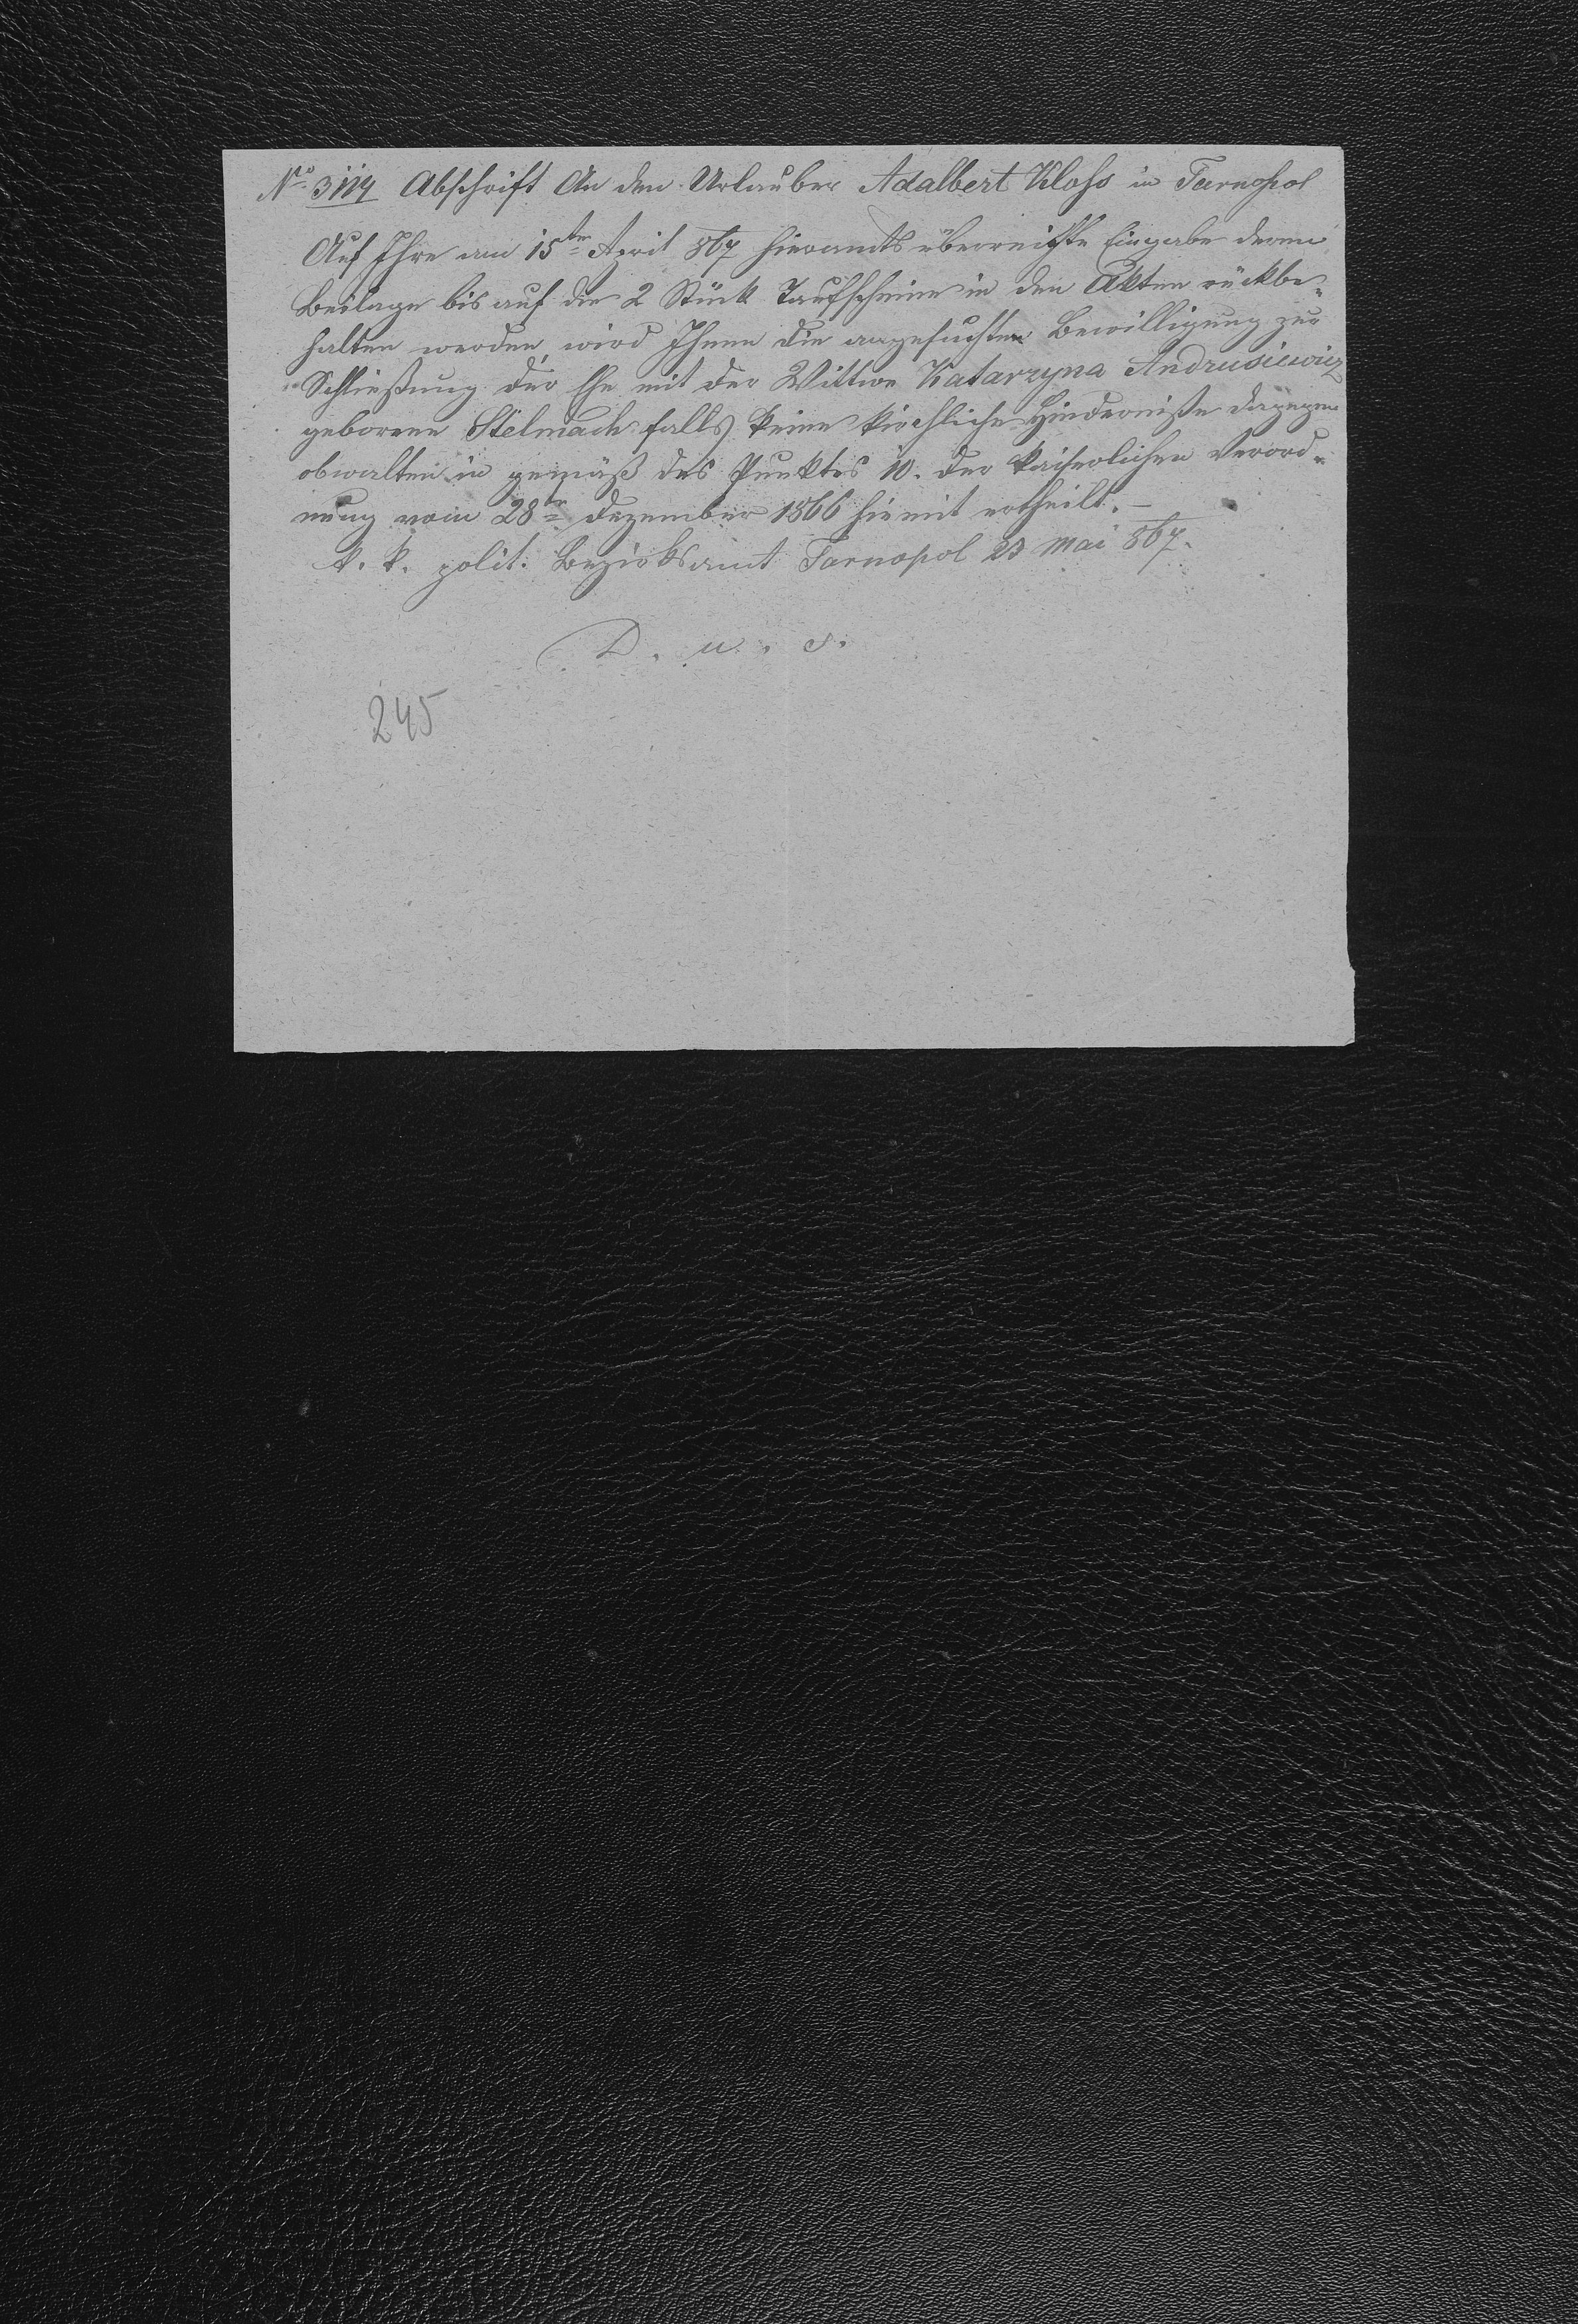 No. 3114 Abschrift An den Urlauber Adalbert Kloss in Tarnopol
Auf Ihre am 15ten April 867 hieramts überreichte Eingabe deren
Beilage bis auf die 2 Stück Taufscheine in den Akten rückbe=
halten werden, wird Ihnen die angesuchten Bewilligung zur
Schließung der Ehe mit der Wittwe Katarzyna Andrusiewicz
geborene Stelmach falls keine kirchliche Hinderniße dagegen
obwalten in gemäß des Punktes 10. der kaiserlichen Verord=
nung vom 28ten Dezember 1866 hiemit ertheilt. –
k. k. polit. Bezirksamt Tarnopol 23 Mai 867.
D. u. s.
245